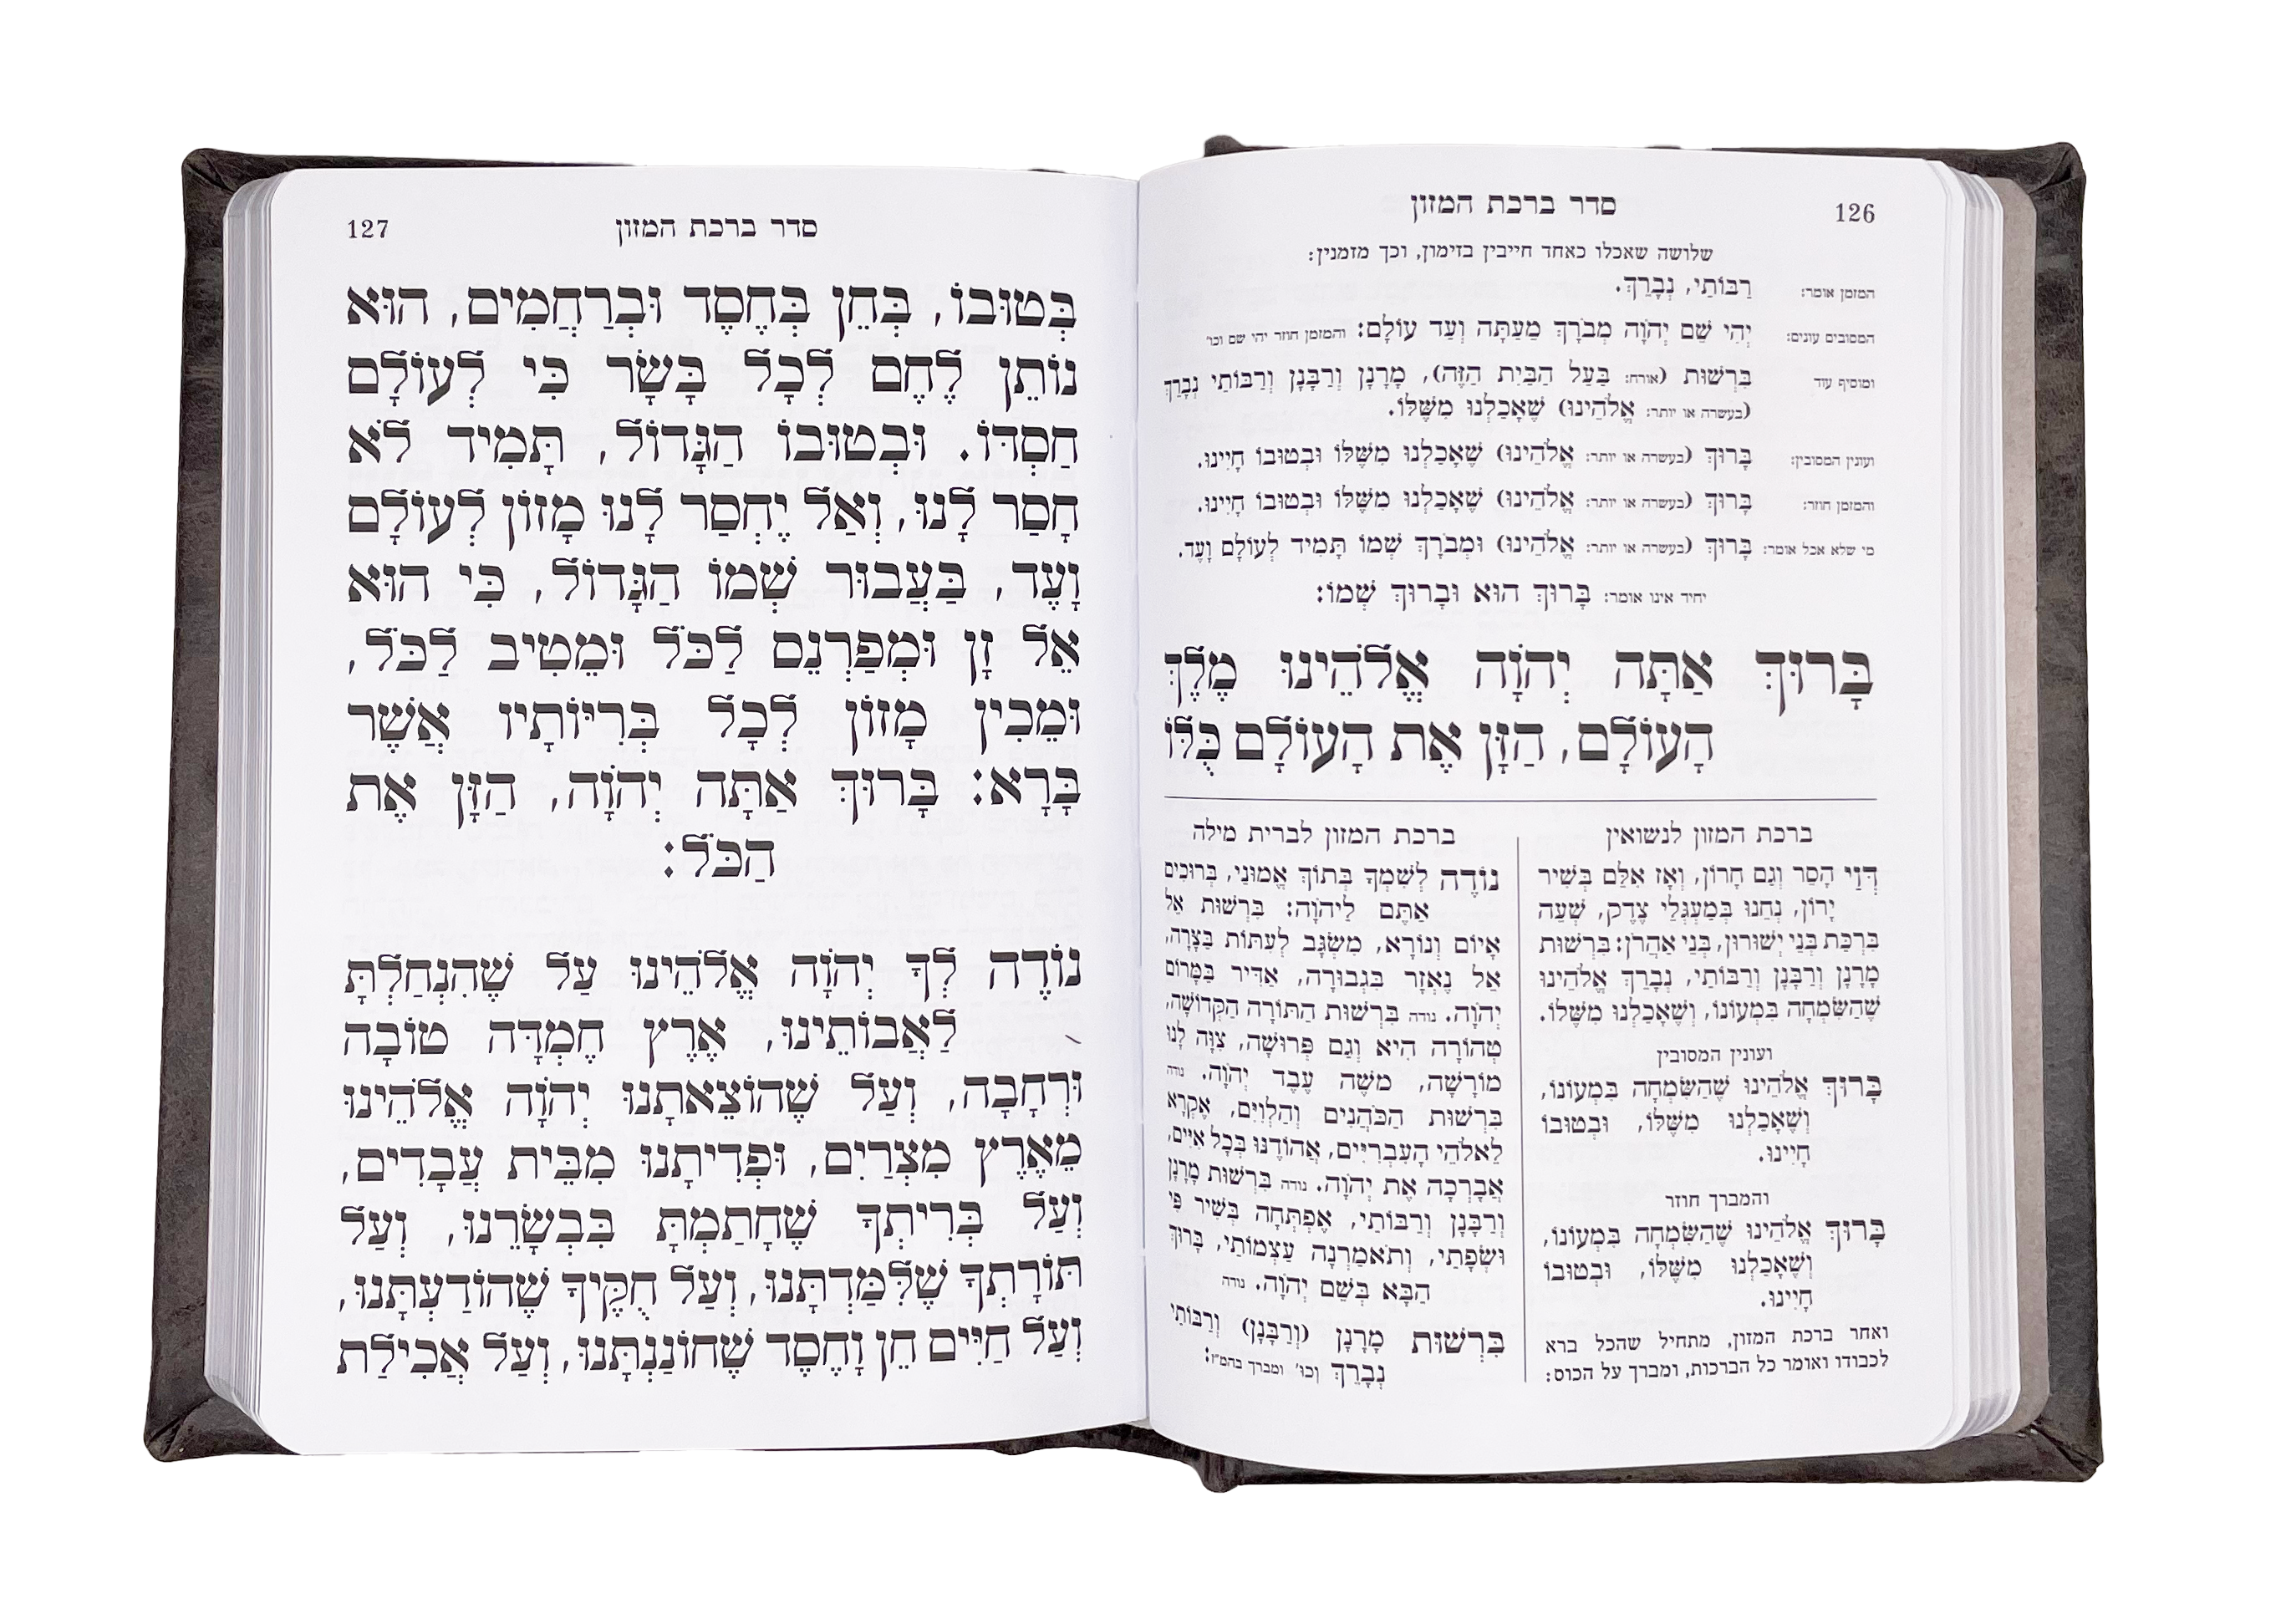 126
סדר ברכת המזון
שלושה שאכלו כאחד חייבין בזימון, וכך מזמנין:
המזמן אומר: רַבּוֹתַי, נְבָרֵךְ.
המסובים עונים: יְהִי שֵׁם יְהֹוָה מְבֹרָךְ מֵעַתָּה וְעַד עוֹלָם: והמזמן חוזר יהי שם וכו'
ומוסיף עוד בִּרְשׁוּת (אורח: בַּעַל הַבַּיִת הַזֶּה), מָרָנָן וְרַבָּנָן וְרַבּוֹתַי נְבָרֵךְ
(בעשרה או יותר: אֱלֹהֵינוּ) שֶׁאָכַלְנוּ מִשֶּׁלּוֹ.
ועונין המסובין: בָּרוּךְ (בעשרה או יותר: אֱלֹהֵינוּ) שֶׁאָכַלְנוּ מִשֶּׁלּוֹ וּבְטוּבוֹ חָיִינוּ.
והמזמן חוזר: בָּרוּךְ (בעשרה או יותר: אֱלֹהֵינוּ) שֶׁאָכַלְנוּ מִשֶּׁלּוֹ וּבְטוּבוֹ חָיִינוּ.
מי שלא אכל אומר: בָּרוּךְ (בעשרה או יותר: אֱלֹהֵינוּ) וּמְבֹרָךְ שְׁמוֹ תָּמִיד לְעוֹלָם וָעֶד.
יחיד אינו אומר: בָּרוּךְ הוּא וּבָרוּךְ שְׁמוֹ:
בָּרוּךְ אַתָּה יְהֹוָה אֱלֹהֵינוּ מֶלֶךְ
הָעוֹלָם, הַזָּן אֶת הָעוֹלָם כֻּלּוֹ
ברכת המזון לנשואין
דְּוַי הָסֵר וְגַם חָרוֹן, וְאָז אִלֵּם בְּשִׁיר
יָרוֹן, נְחֵנוּ בְּמַעְגְּלֵי צֶדֶק, שְׁעֵה
בִּרְכַּת בְּנֵי יְשׁוּרוּן, בְּנֵי אַהֲרֹן: בִּרְשׁוּת
מָרָנָן וְרַבָּנָן וְרַבּוֹתַי, נְבָרֵךְ אֱלֹהֵינוּ
שֶׁהַשִּׂמְחָה בִּמְעוֹנוֹ, וְשֶׁאָכַלְנוּ מִשֶּׁלּוֹ.
ועונין המסובין
בָּרוּךְ אֱלֹהֵינוּ שֶׁהַשִּׂמְחָה בִּמְעוֹנוֹ,
וְשֶׁאָכַלְנוּ מִשֶּׁלּוֹ, וּבְטוּבוֹ
חָיִינוּ.
והמברך חוזר
בָּרוּךְ אֱלֹהֵינוּ שֶׁהַשִּׂמְחָה בִּמְעוֹנוֹ,
וְשֶׁאָכַלְנוּ מִשֶּׁלּוֹ, וּבְטוּבוֹ
חָיִינוּ.
ואחר ברכת המזון, מתחיל שהכל ברא
לכבודו ואומר כל הברכות, ומברך על הכוס:
ברכת המזון לברית מילה
נוֹדֶה לְשִׁמְךָ בְּתוֹךְ אֱמוּנַי, בְּרוּכִים
אַתֶּם לַיהֹוָה: בִּרְשׁוּת אֵל
אָיוֹם וְנוֹרָא, מִשְׂגָּב לְעִתּוֹת בַּצָּרָה,
אֵל נֶאְזָר בִּגְבוּרָה, אַדִּיר בַּמָּרוֹם
יְהֹוָה. נודה בִּרְשׁוּת הַתּוֹרָה הַקְּדוֹשָׁה,
טְהוֹרָה הִיא וְגַם פְּרוּשָׁה, צִוָּה לָנוּ
מוֹרָשָׁה, מֹשֶׁה עֶבֶד יְהֹוָה. נודה
בִּרְשׁוּת הַכֹּהֲנִים וְהַלְוִיִּם, אֶקְרָא
לֵאלֹהֵי הָעִבְרִיִּים, אֲהוֹדֶנּוּ בְּכָל אִיִּים,
אֲבָרְכָה אֶת יְהֹוָה. נודה בִּרְשׁוּת מָרָנָן
וְרַבָּנָן וְרַבּוֹתַי, אֶפְתְּחָה בְּשִׁיר פִּי
וּשְׂפָתַי, וְתֹאמַרְנָה עַצְמוֹתַי, בָּרוּךְ
הַבָּא בְּשֵׁם יְהֹוָה. נודה
בִּרְשׁוּת מָרָנָן (וְרַבָּנָן) וְרַבּוֹתַי
נְבָרֵךְ וכו' ומברך בהמ"ז:
סדר ברכת המזון
127
בְּטוּבוֹ, בְּחֵן בְּחֶסֶד וּבְרַחֲמִים, הוּא
נוֹתֵן לֶחֶם לְכָל בָּשָׂר כִּי לְעוֹלָם
חַסְדּוֹ. וּבְטוּבוֹ הַגָּדוֹל, תָּמִיד לֹא
חָסַר לָנוּ, וְאַל יֶחְסַר לָנוּ מָזוֹן לְעוֹלָם
וָעֶד, בַּעֲבוּר שְׁמוֹ הַגָּדוֹל, כִּי הוּא
אֵל זָן וּמְפַרְנֵס לַכֹּל וּמֵטִיב לַכֹּל,
וּמֵכִין מָזוֹן לְכָל בְּרִיּוֹתָיו אֲשֶׁר
בָּרָא: בָּרוּךְ אַתָּה יְהֹוָה, הַזָּן אֶת
הַכֹּל:
נוֹדֶה לְּךָ יְהֹוָה אֱלֹהֵינוּ עַל שֶׁהִנְחַלְתָּ
לַאֲבוֹתֵינוּ, אֶרֶץ חֶמְדָּה טוֹבָה
וּרְחָבָה, וְעַל שֶׁהוֹצֵאתָנוּ יְהֹוָה אֱלֹהֵינוּ
מֵאֶרֶץ מִצְרַיִם, וּפְדִיתָנוּ מִבֵּית עֲבָדִים,
וְעַל בְּרִיתְךָ שֶׁחָתַמְתָּ בִּבְשָׂרֵנוּ, וְעַל
תּוֹרָתְךָ שֶׁלִּמַּדְתָּנוּ, וְעַל חֻקֶּיךָ שֶׁהוֹדַעְתָּנוּ,
וְעַל חַיִּים חֵן וָחֶסֶד שֶׁחוֹנַנְתָּנוּ, וְעַל אֲכִילַת